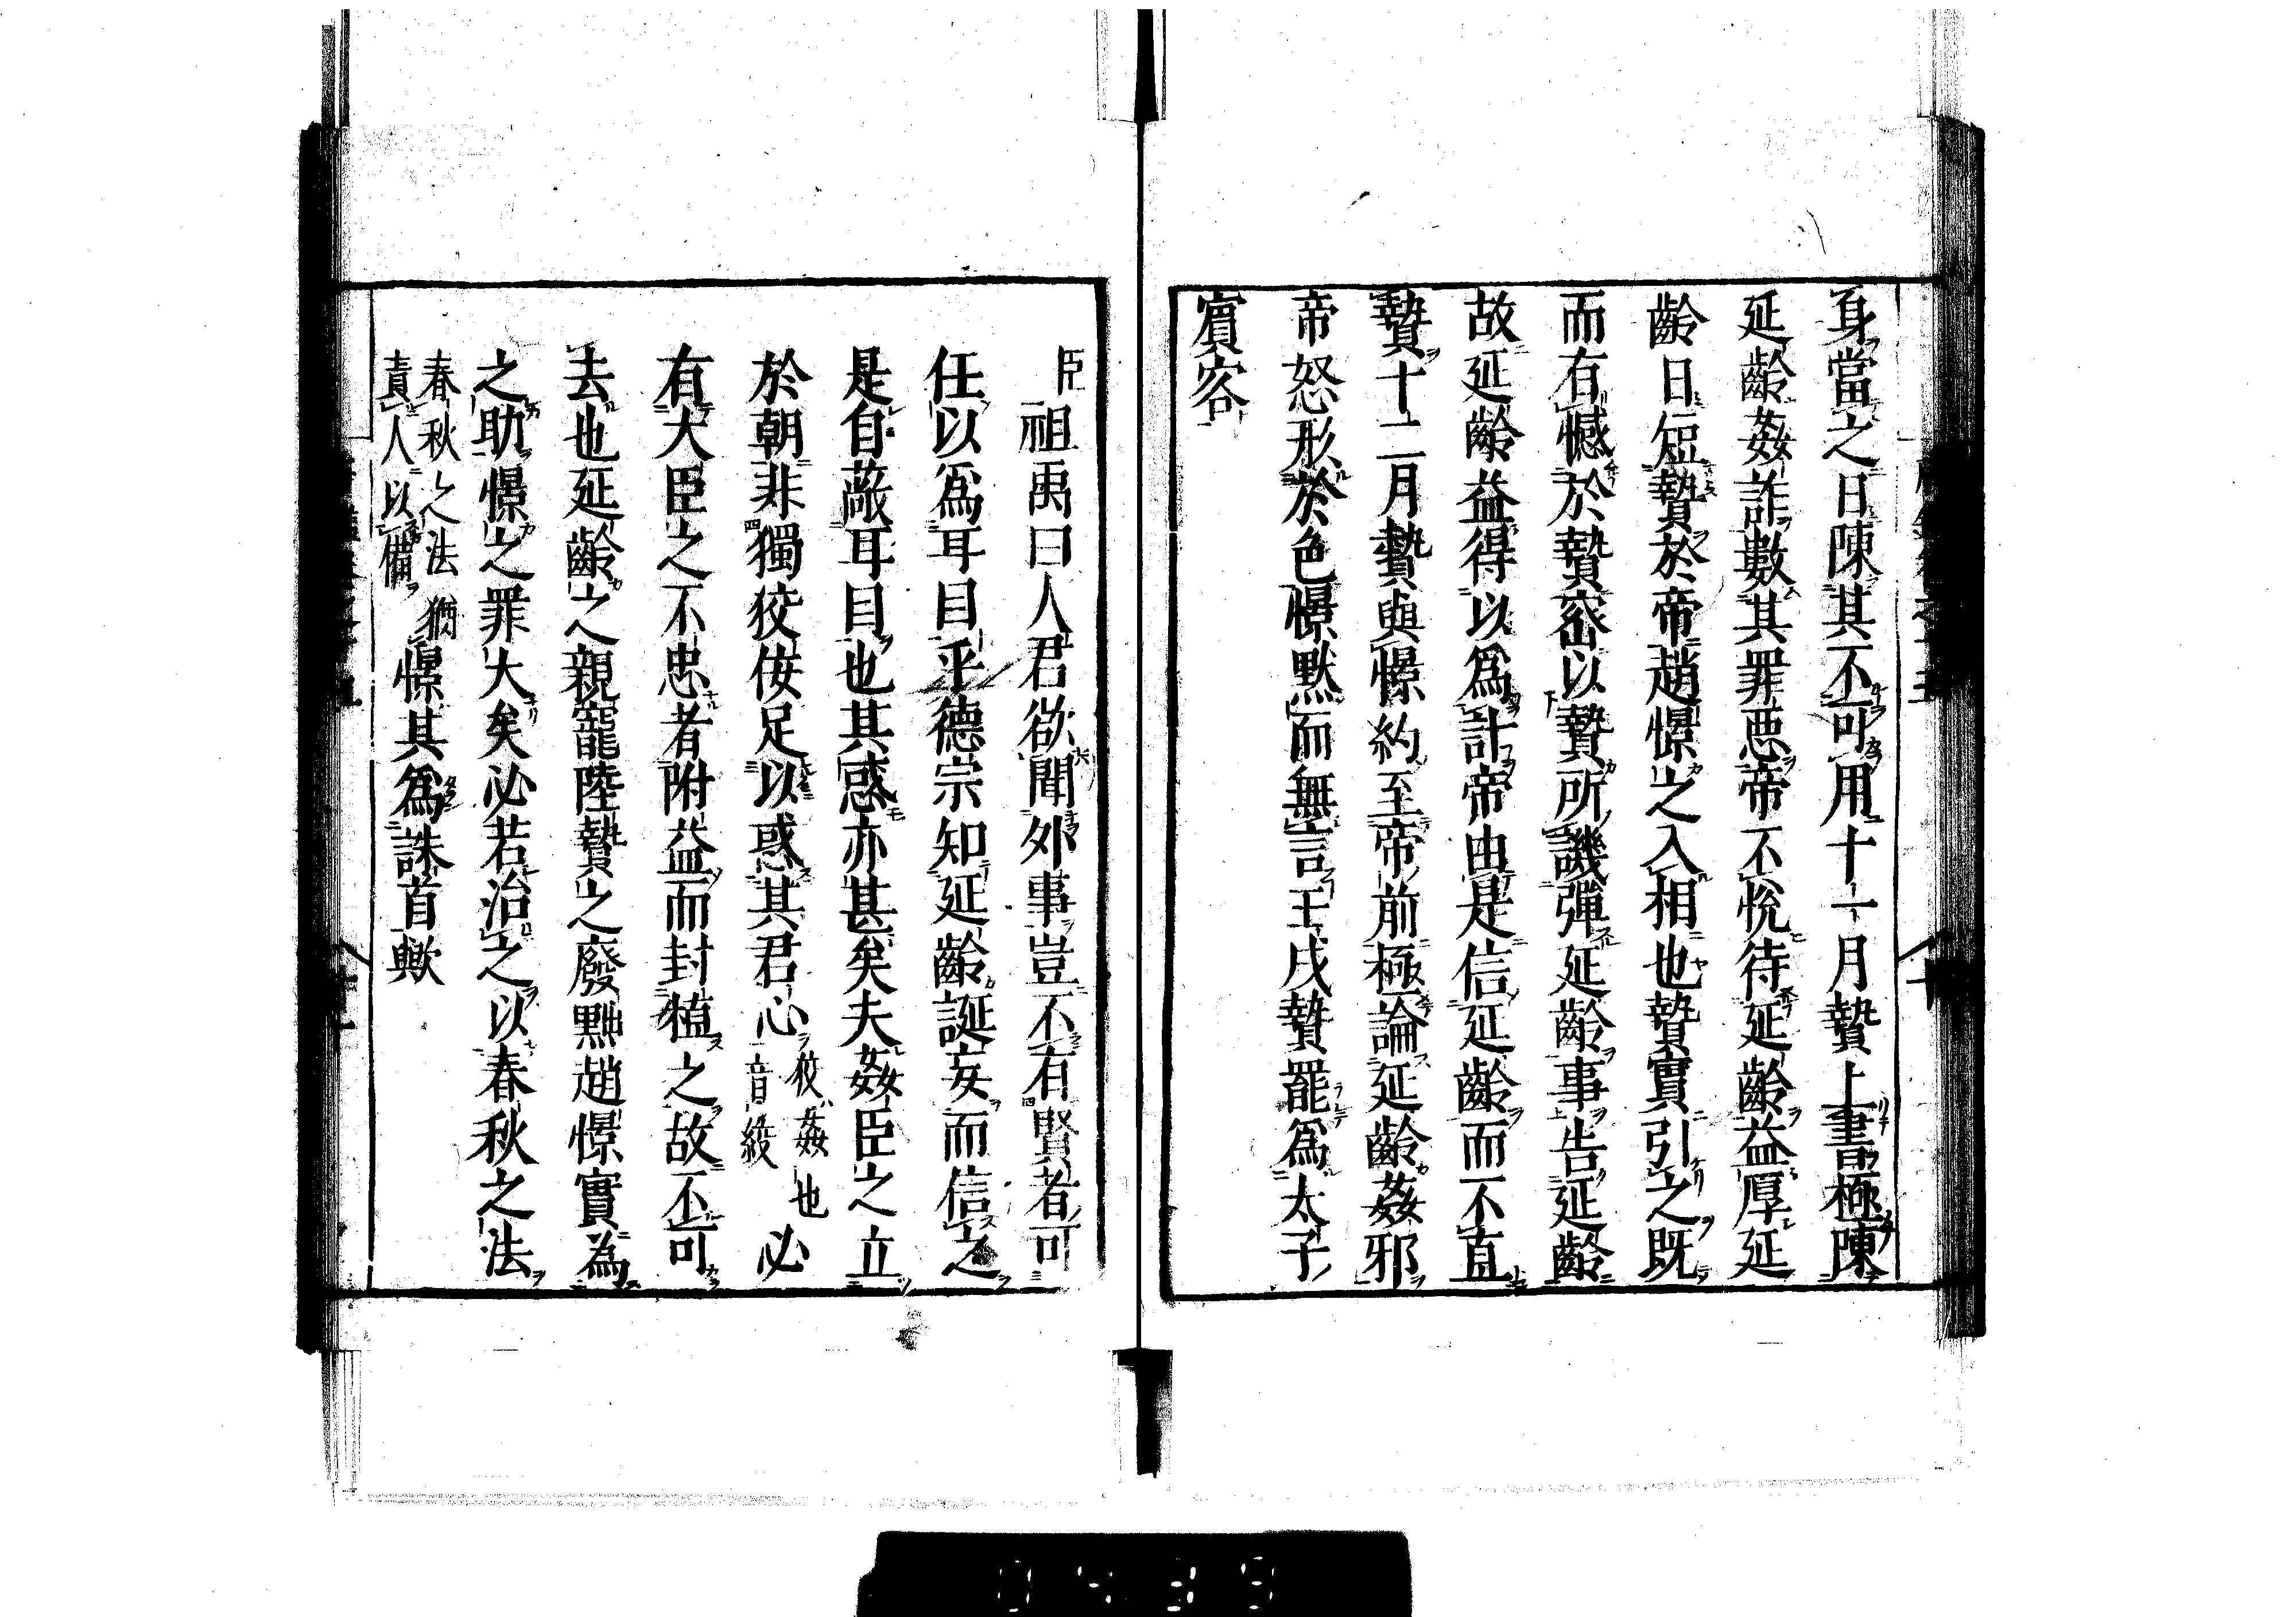 身當之日陳其不可用十一月贄上書極陳
延齡姦詐數其罪惡帝不悅待延齡益厚延
齡日短贄於帝趙憬之入相也贄實引之既
而有憾於贄密以贄所譏彈延齡事告延齡
故延齡益得以爲計帝由是信延齡而不直
贄十二月贄與憬約至帝前極論延齡姦邪
帝怒形於色憬默而無言壬戌贄罷爲太子
賓客
臣祖禹曰人君欲聞外事豈不有賢者可
任以爲耳目乎德宗知延齡誕妄而信之
是自蔽耳目也其惑亦甚矣夫姦臣之立
於朝非獨狡佞足以惑其君心狡姦也音絞必
有大臣之不忠者附益而封植之故不可
去也延齡之親寵陸贄之廢黜趙憬實為
之助憬之罪大矣必若治之以春秋之法
春秋之法猶責人以備憬其爲誅首歟